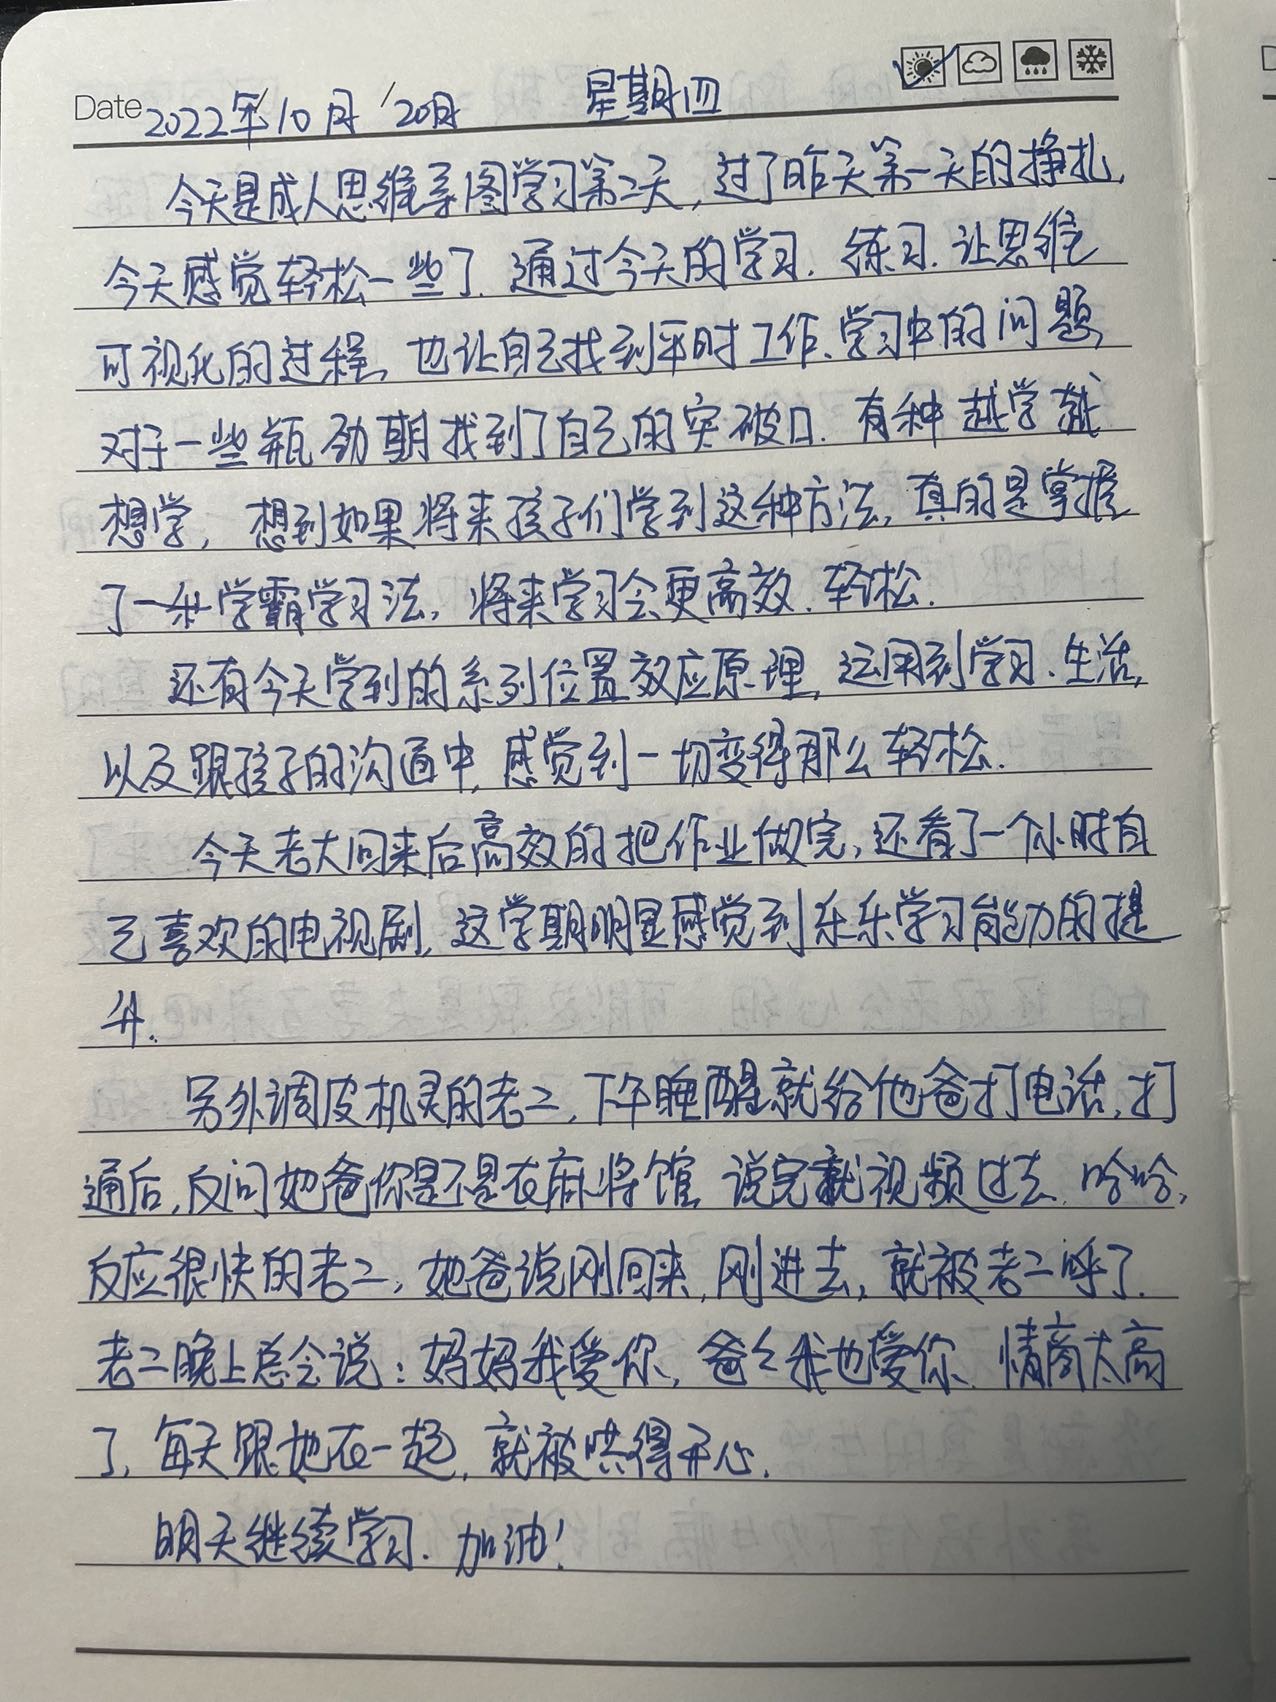 Date 2022年10月/20日 星期四
今天是成人思维导图学习第二天,过了昨天第一天的挣扎,
今天感觉轻松一些了.通过今天的学习.练习.让思维
可视化的过程,也让自己找到平时工作、学习中的问题,
对于一些瓶劲期找到了自己的突破口.有种越学越
想学,想到如果将来孩子们学到这种方法,真的是掌握
了一种学霸学习法,将来学习会更高效.轻松.
还有今天学到的系列位置效应原理,运用到学习.生活,
以及跟孩子的沟通中,感觉到一切变得那么轻松.
今天老大回来后高效的把作业做完,还看了一个小时自
己喜欢的电视剧,这学期明显感觉到乐乐学习能力的提
升.
另外调皮机灵的老二,下午睡醒就给他爸打电话,打
通后,反问她爸你是不是在麻将馆,说完就视频过去.哈哈,
反应很快的老二,她爸说刚回来,刚进去,就被老二呼了.
老二晚上总会说:妈妈我爱你,爸々我也爱你.情商太高
了,每天跟她在一起,就被哄得开心.
明天继续学习.加油!